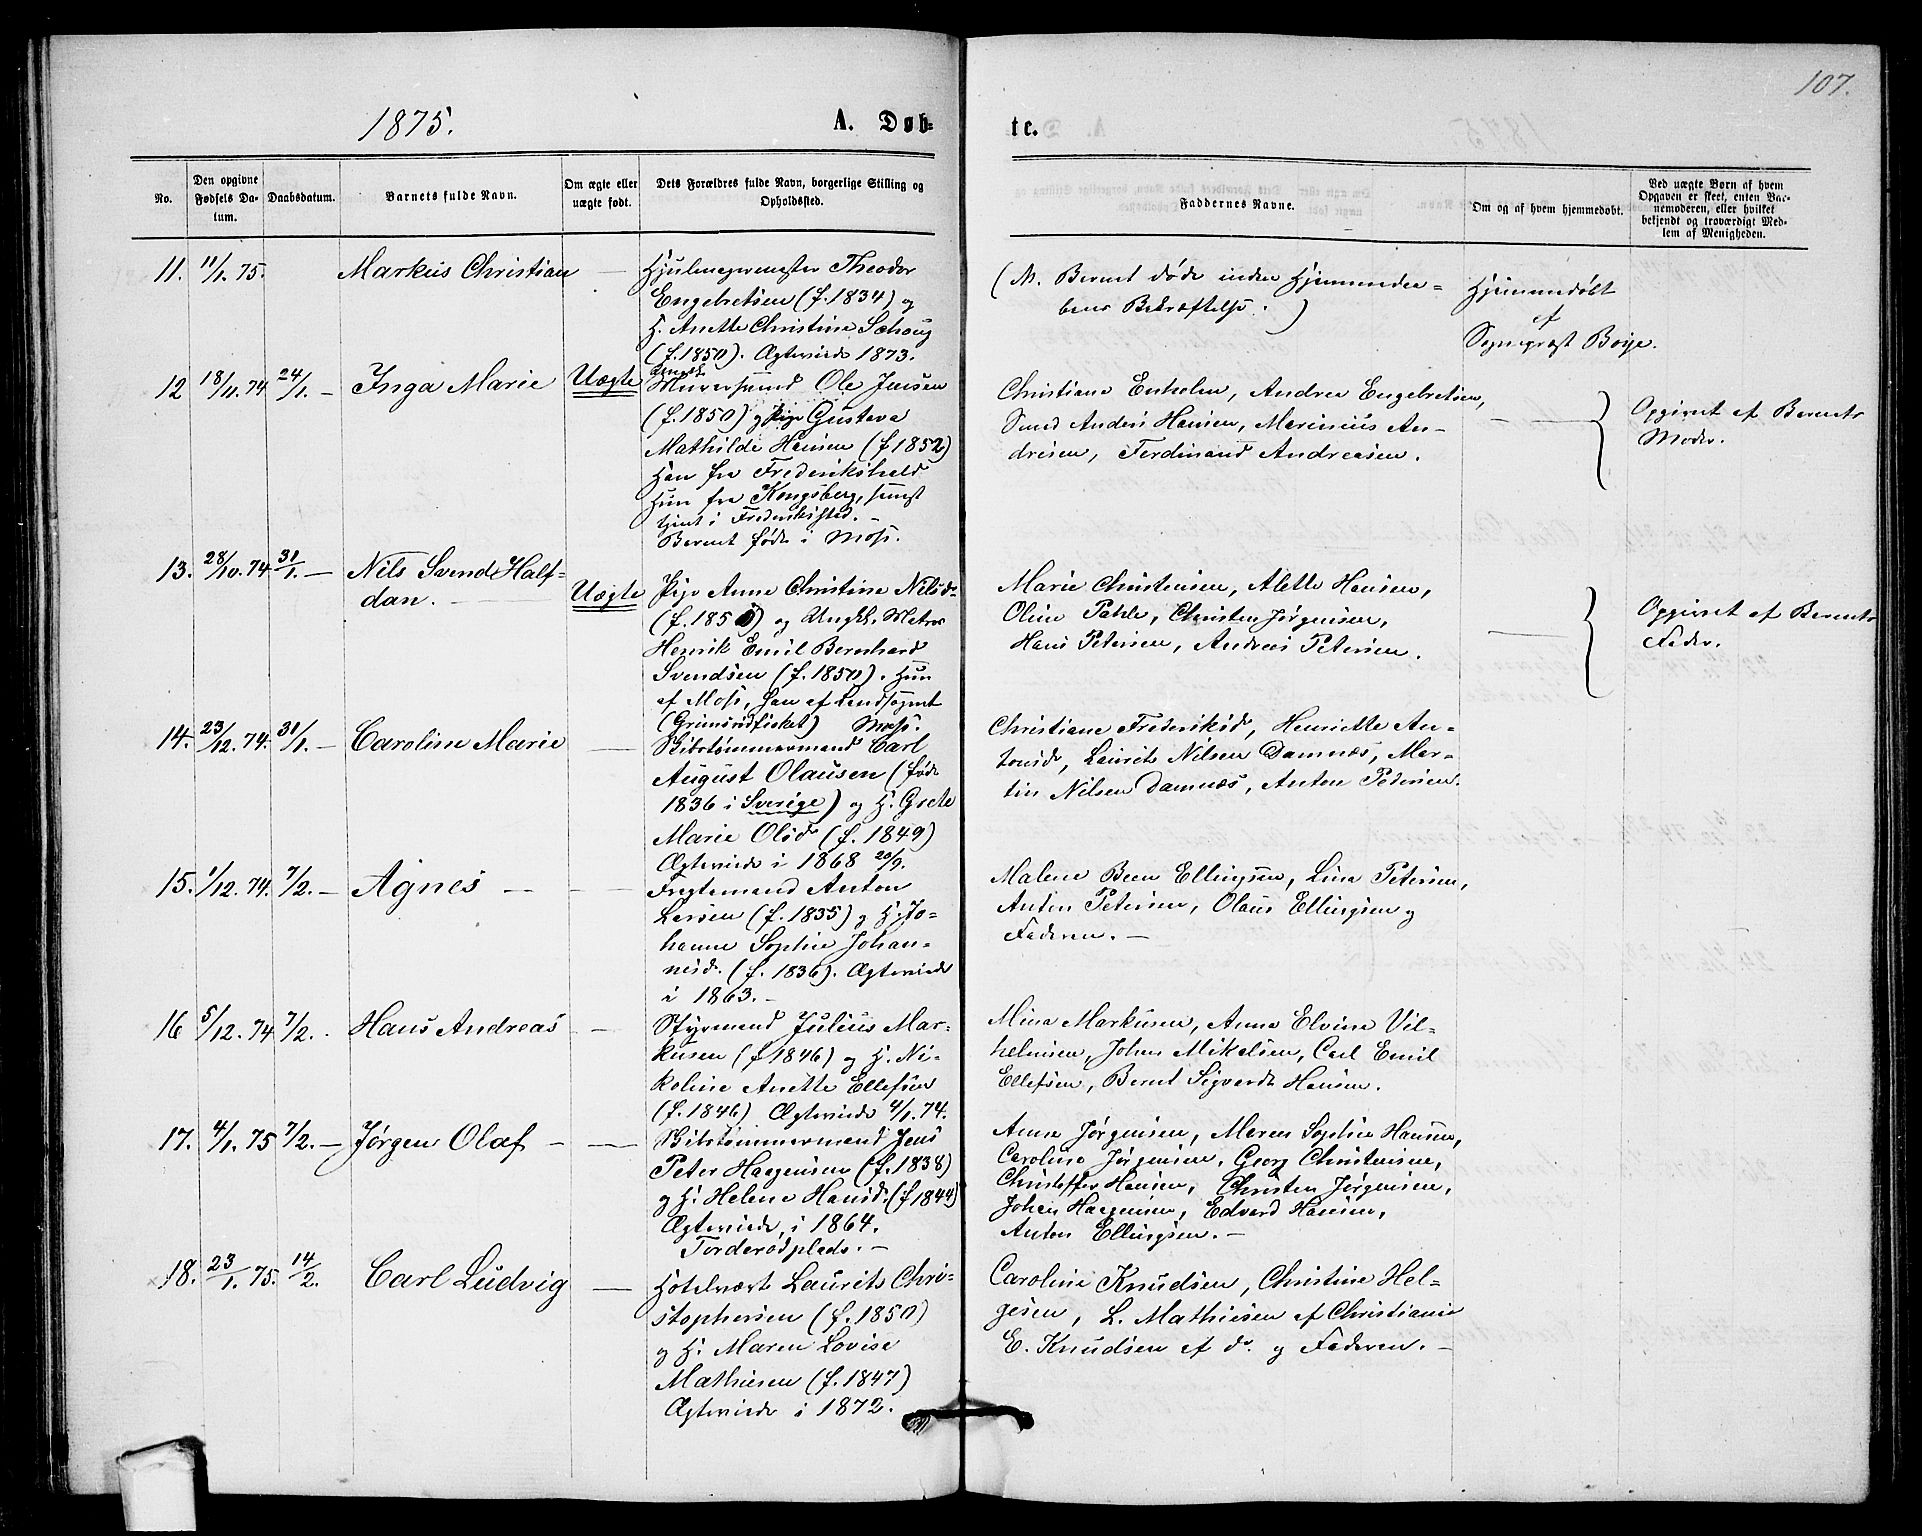 107.
1875.
A. Døb-
te.
No.
Den opgivne
Fødsels Da-
tum.
Daabsdatum.
Barnets fulde Navn.
Om ægte eller
uægte født.
Dets Forældres fulde Navn, borgerlige Stilling og
Opholdssted.
Faddernes Navne.
Om og af hvem hjemmedøbt.
Ved uægte Børn af hvem
Opgaven er skeet, enten Bar-
nemoderen, eller hvilket
bekjendt og troværdigt Med-
lem af Menigheden.
11. 11/1. 75. Markus Christian —
Hjulmagermester Theodor
Engebretsen (f. 1834) og
H. Anette Christine Schoug
(f. 1850). Ægteviede 1873.
(N. Barnet døde inden Hjemmedaa-
bens Bekræftelse. )
Hjemmedøbt
af
Sogneprest Boije.
12 18/11. 74 24/1. — Inga Marie Uægte
Murersvend Ole Jensen
(f. 1850) og Pige Gustava
Mathilde Hansen (f. 1852)
Han fra Frederikshald
Hun fra Kongsberg, senest
tjent i Frederiksstad. —
Barnet født i Moss.
Christiane Enholm, Andrea Engebretsen,
Svend Anders Hansen, Marinius An-
dresen, Ferdinand Andreasen.
—
Opgivet af Barnets
Moder.
13. 28/10. 74 31/1. — Nils Svend Half-
dan. — Uægte
Pige Anne Christine Nilsd.
(f. 185 ) og Ungk. Matros
Henrik Emil Bernhard
Svendsen (f. 1850). Hun
af Moss, han af Landsognet
(Grimsrødfisket) Moss.
Marie Christensen, Alette Hansen,
Oline Pahle, Christen Jørgensen,
Hans Petersen, Andreas Petersen.
—
Opgivet af Barnets
Fader.
14. 23/12. 74. 31/1. — Caroline Marie —
Skibstømmermand Carl
August Olausen (født
1836 i Sverige) og H. Grete
Marie Olsd. (f. 1849)
Ægteviede i 1868 20/9.
Christiane Frederiksd., Henriette An-
tonsd., Laurits Nilsen Damnæs, Mar-
tin Nilsen Damnæs, Anton Pedersen.
15. 1/12. 74. 7/2. — Agnes — —
Fragtemand Anton
Larsen (f. 1835) og H. Jo-
hanne Sophie Johan-
nesd. (f. 1836). Ægteviede
i 1863. —
Malene Been Ellingsen, Lina Petersen,
Anton Petersen, Olaus Ellingsen og
Faderen. —
16 5/12. 74 7/2. Hans Andreas —
Styrmand Julius Mar-
kusen (f. 1846) og H. Ni-
koline Anette Ellefsen
(f. 1846) Ægteviede 4/1. 74.
Mina Markusen, Anna Elvine Vil-
helmsen, Johan Mikelsen, Carl Emil
Ellefsen, Bernt Sigvardt Hansen.
17. 4/1. 75 7/2. — Jørgen Olaf — —
Skibstømmermand Jens
Peter Haagensen (f. 1838)
og H. Helene Hansd. (f. 1844)
Ægteviede, i 1864.
Torderødplads. —
Anna Jørgensen, Maren Sophie Hansen,
Caroline Jørgensen, Georg Christensen,
Christoffer Hansen, Christen Jørgensen,
Johan Haagensen, Edvard Hansen,
Anton Ellingsen. —
18. 23/1. 75. 14/2. Carl Ludvig —
Hotelvært Laurits Chri-
stophersen (f. 1850)
og H. Maren Lovise
Mathiesen (f. 1847)
Ægteviede i 1872.
Caroline Knudsen, Christine Hel-
gesen, L. Mathiesen af Christiania
E. Knudsen af do. og Faderen. —